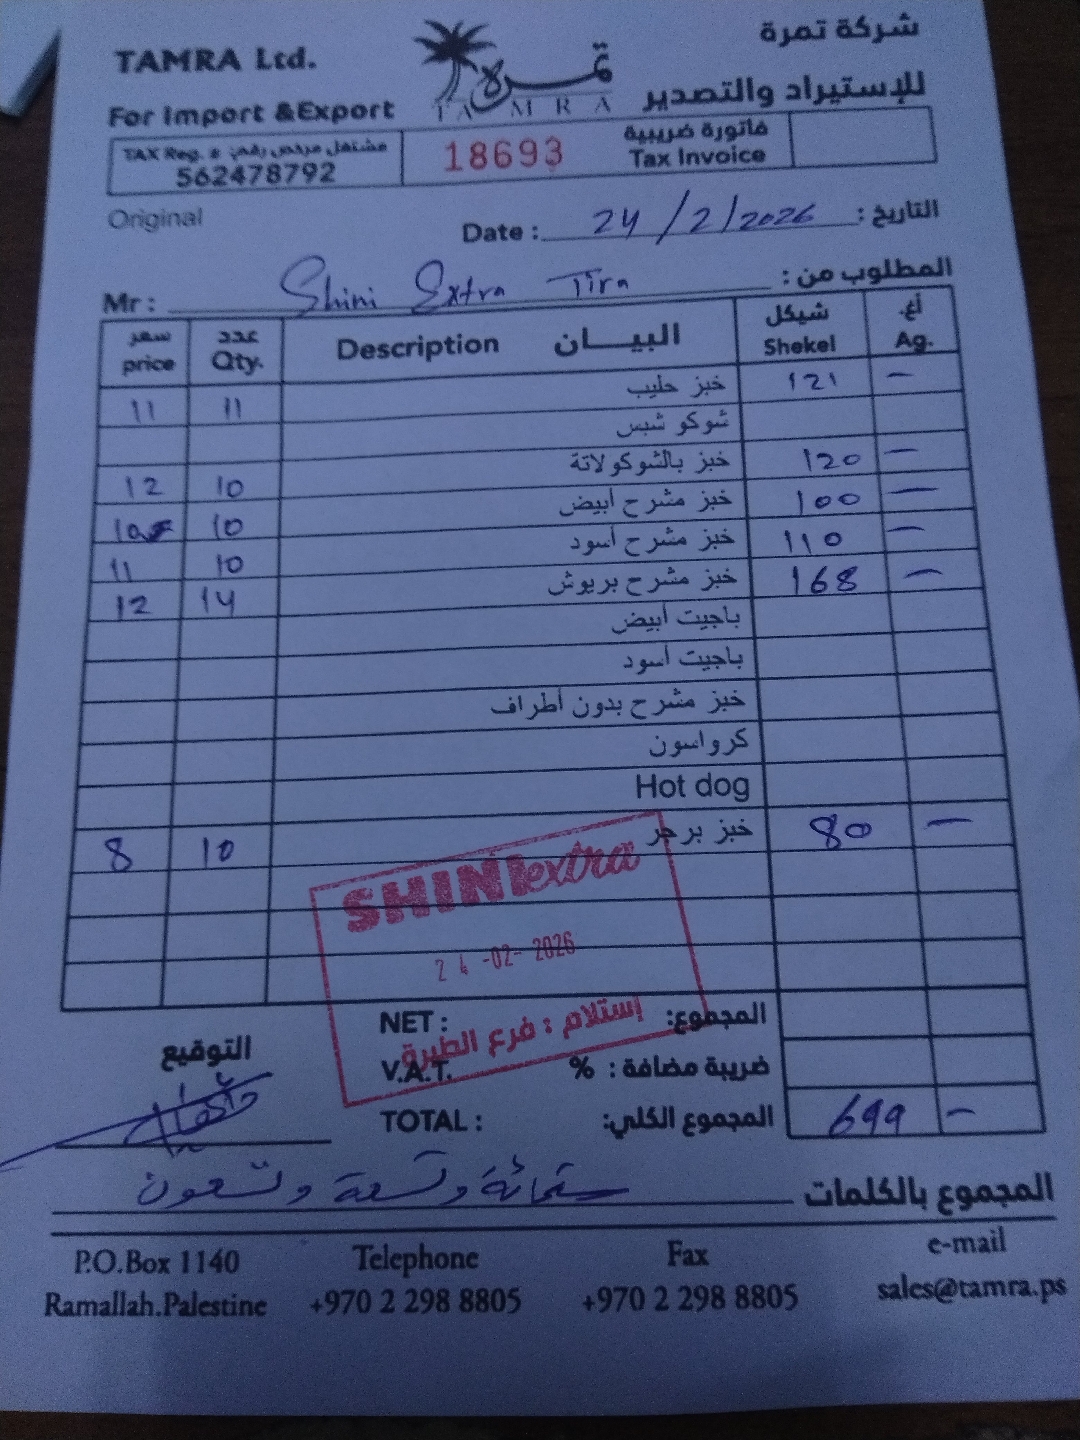 TAMRA Ltd.
شركة تمرة
For Import &Export
للإستيراد والتصدير
تمرة
TAMRA
TAX Reg. # مشتغل مرخص رقم:
562478792
18693
فاتورة ضريبية
Tax Invoice
Original
Date : 24/2/2026 التاريخ :
Mr : Shini Extra Tira المطلوب من :
سعر price عدد Qty. Description البيـــان شيكل Shekel أغ. Ag.
11 11 خبز حليب 121 –
شوكو شبس
12 10 خبز بالشوكولاتة 120 –
10 10 خبز مشرح أبيض 100 –
11 10 خبز مشرح أسود 110 –
12 14 خبز مشرح بريوش 168 –
باجيت أبيض
باجيت أسود
خبز مشرح بدون أطراف
كرواسون
Hot dog
8 10 خبز برجر 80 –
SHINI extra
24-02-2026
إستلام : فرع الطيرة
NET : المجموع:
التوقيع
V.A.T. % ضريبة مضافة :
TOTAL : المجموع الكلي: 699 –
المجموع بالكلمات ستمائة وتسعة وتسعون
P.O.Box 1140 Telephone Fax e-mail
Ramallah.Palestine +970 2 298 8805 +970 2 298 8805 sales@tamra.ps